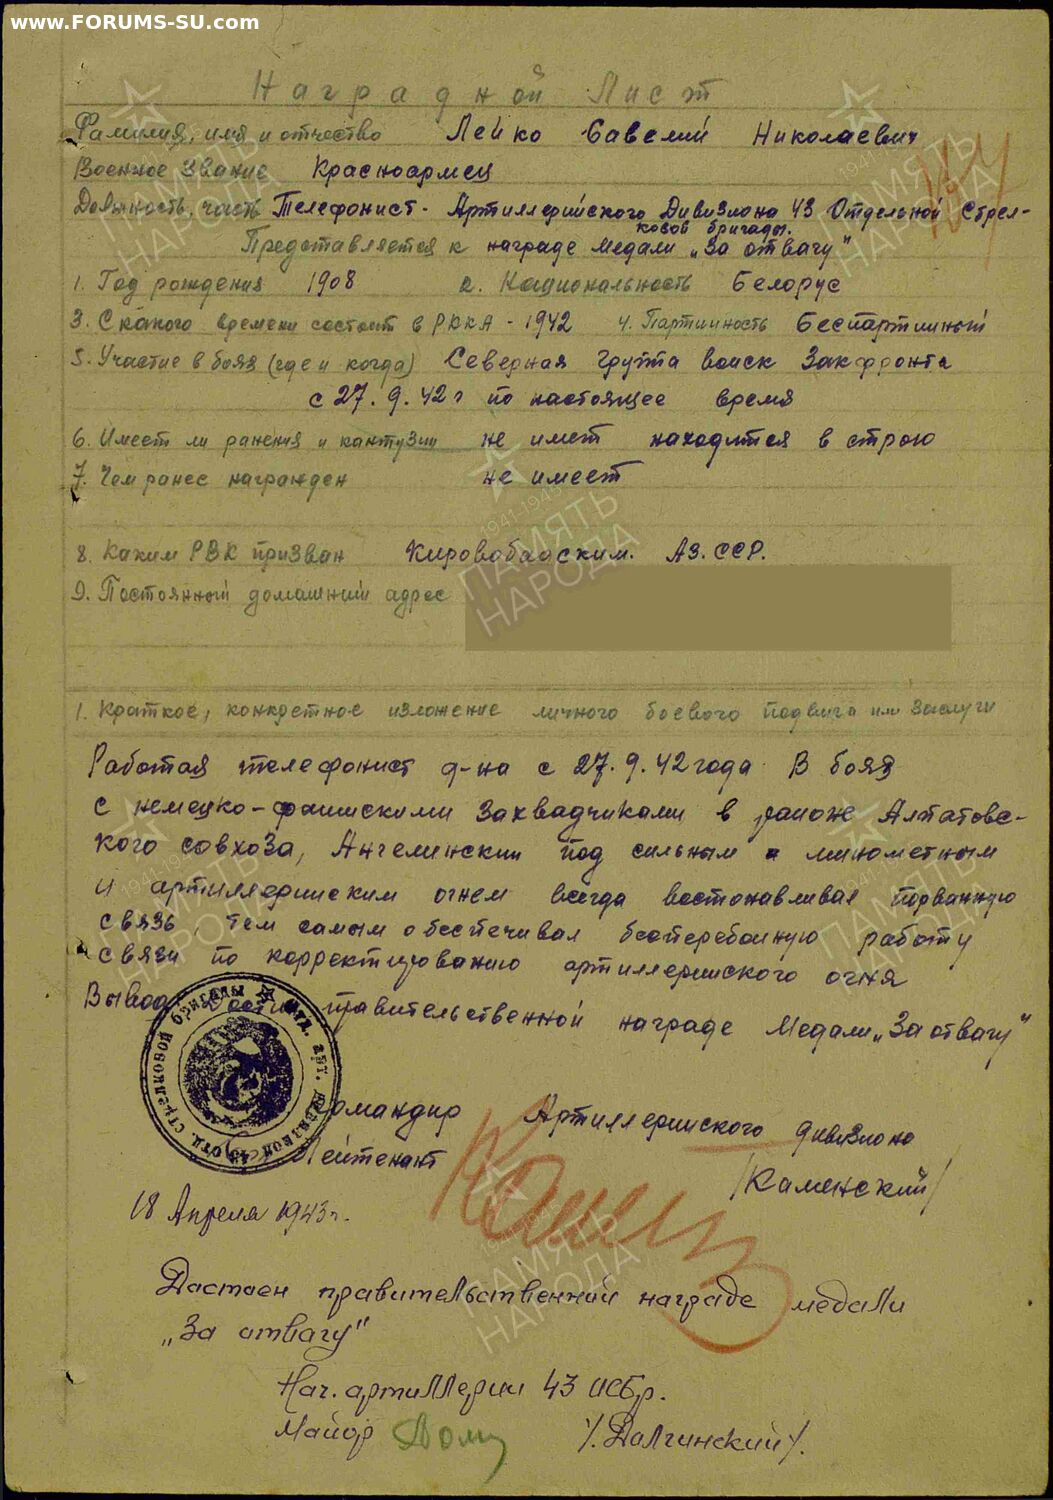 www.FORUMS-SU.com
Наградной Лист
Фамилия, имя и отчество Лейко Савелий Николаевич
Военное звание Красноармец
Должность, часть Телефонист - Артиллерийского Дивизиона 43 Отдельной Стрел-
ковой бригады.
Представляется к награде медали „За отвагу"
1. Год рождения 1908 2. Национальность Белорус
3. С какого времени состоит в РККА - 1942 4. Партийность Беспартийный
5. Участие в боях (где и когда) Северная группа войск Закфронта
с 27.9.42 г по настоящее время
6. Имеет ли ранения и кантузии не имет находится в строю
7. Чем ранее награжден не имеет
8. Каким РВК призван Кировобадским. Аз.ССР.
9. Постоянный домашний адрес
1. Краткое, конкретное изложение личного боевого подвига или заслуги
Работая телефонист д-на с 27.9.42 года В боях
с немецко-фашискими захвадчиками в районе Алпатовс-
кого совхоза, Ангелинский под сильным минометным
и артиллерииским огнем всегда востонавливал порванную
связь, тем самым обеспечивал бесперебойную работу
связи по корректированию артиллерииского огня
Вывод: правительственной награде Медали „За отвагу"
Командир Артиллериского дивизиона
Лейтенант /Каменский/
18 Апреля 1943 г.
Достоен правительственной награде медали
„За отвагу"
Нач. артиллерии 43 ОСБр.
Майор /.Долгинский/.
ПАМЯТЬ
НАРОДА
1941-1945